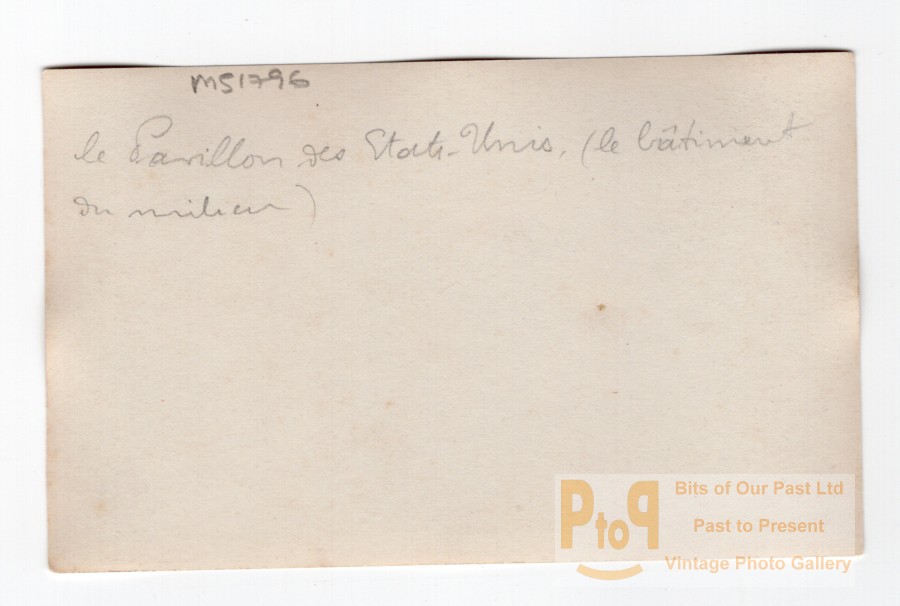 MS1796
le Pavillon des Etats-Unis. (le bâtiment
du milieu)
PtoP
Bits of Our Past Ltd
Past to Present
Vintage Photo Gallery